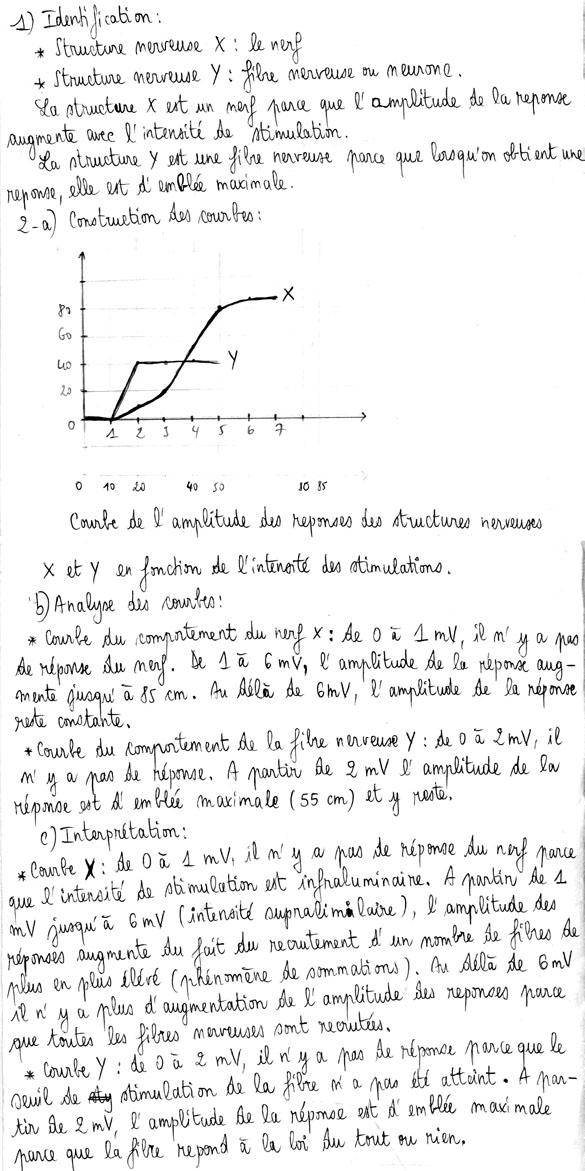 1) Identification :
* Structure nerveuse X : le nerf
* Structure nerveuse Y : fibre nerveuse ou neurone.
La structure X est un nerf parce que l'amplitude de la reponse
augmente avec l'intensité de stimulation.
La structure Y est une fibre nerveuse parce que lorsqu'on obtient une
reponse, elle est d'emblée maximale.
2-a) Construction des courbes :
X
80
60
Y
40
20
0 1 2 3 4 5 6 7
0 10 20 40 50 80 85
Courbe de l'amplitude des reponses des structures nerveuses
X et Y en fonction de l'intensité des stimulations.
b) Analyse des courbes :
* Courbe du comportement du nerf X : de 0 à 1 mV, il n'y a pas
de réponse du nerf. De 1 à 6 mV, l'amplitude de la réponse aug-
mente jusqu'à 85 cm. Au délà de 6mV, l'amplitude de la réponse
reste constante.
* Courbe du comportement de la fibre nerveuse Y : de 0 à 2mV, il
n'y a pas de réponse. A partir de 2 mV l'amplitude de la
réponse est d'emblée maximale (55 cm) et y reste.
c) Interprétation :
* Courbe X : de 0 à 1 mV, il n'y a pas de réponse du nerf parce
que l'intensité de stimulation est infraluminaire. A partin de 1
mV jusqu'à 6 mV (intensité supralimilaire), l'amplitude des
réponses augmente du fait du recrutement d'un nombre de fibres de
plus en plus élévé (phénomène de sommations). Au délà de 6mV
il n'y a plus d'augmentation de l'amplitude des reponses parce
que toutes les fibres nerveuses sont recrutées.
* Courbe Y : de 0 à 2 mV, il n'y a pas de réponse parce que le
seuil de stimulation de la fibre n'a pas été atteint. A par-
tir de 2 mV, l'amplitude de la réponse est d'emblée maximale
parce que la fibre repond à la loi du tout ou rien.